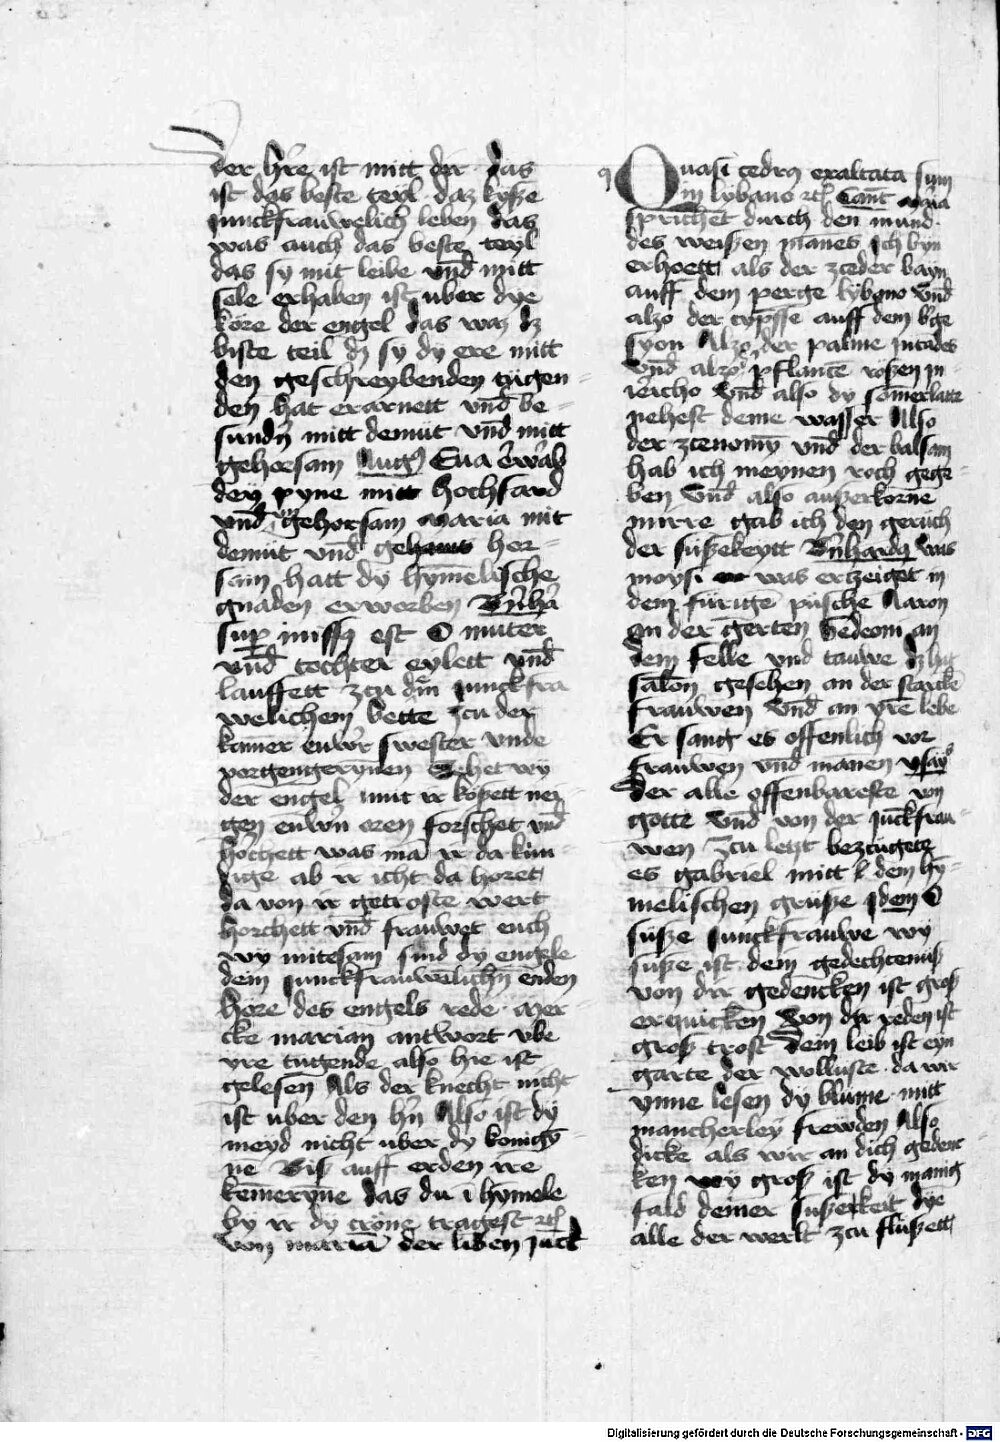 der hre ist mitt dir das
ist das beste teyl daz kysze
junckfrauwelich leben das
was auch das beste teyl
das sy mit leibe vnd mitt
sele erhaben ist uber dye
köre der engel das waz dz
biste teil dz sy dy ere mitt
den geschreybenden tugen-
den hat erarnett vnd be-
sundn mitt demut vnd mitt
gehorsam Aug9 Eua erwab
dey pyne mitt hochfard
vnd vngehorsam maria mit
demut vnd hor-
sam hatt dy hymelische
gnaden erworben Bnha
sup missus est O muter
vnd tochter eylett vnd
lauffett zcu dem junckfra
welichem bette zcu der
kamer euwer swester vnde
vorgengerynen Sehet wy
der engel mit ir koszett nei-
gen euwrn oren forschet vnd
hochett was ma ir da kun-
dige ab ir icht da horet
da von ir getroste wert
horchett vnd frauwet euch
wy mitesam sind dy engele
dein junckfrauwelichn enden
Hore des engels rede mer-
cke marian antwort vbe
yre tugende also hie ist
gelesen Als der knecht nicht
ist uber den hn Also ist dy
meyd nicht uber dy konigy-
ne Bisz auff erden ire
kemeryne das du i hymele
by ir dy cröne tragest etc
von maria der liben juck
Quasi cedrus exaltata sum
in lybano etc Sant maria
sprichet durch den mund
des weiszen manes Ich byn
erhoett als der zceder baym
auff dem perge lybano vnd
alzo der cypsse auff dem bge
syon Alzo der palme in cades
vnd alzo pflantte roszen in
jericho vnd also dy somerlatte
nehest deme wasser Also
der zcenomy vnd der balsam
hab ich meynen roch gege-
ben vnd also auszerkorne
mirre gab ich den geruch
der suszekeytt Bnhardus was
moysi was erczeiget in
dem furige pusche Aaron
an der gerten Gedeoni an
dem felle vnd tauwe dz hat
salon gesehen an der starcke
frauwen vnd an yre lebe
Er sang es offenlich vor
frauwen vnd manen ysay
Der alle offenbareste von
gotte vnd von der juckfrau-
wen zcu letzt bezcugete
es gabriel mitt dem hy-
melischen grusze Idem O
susze junckfrauwe wy
susze ist dein gedechtenusz
von dir gedencken ist grosz
erquicken von dir reden ist
grosz trost Dein leib ist eyn
garte der wolluste da wir
ynne lesen dy blume mitt
mancherley freyden Also
dicke als wir an dich gedenc
ken wy grosz ist dy manig
fald deiner suszekeit dye
alle der werlt zcu fluszett
Digitalisierung gefördert durch die Deutsche Forschungsgemeinschaft - DFG